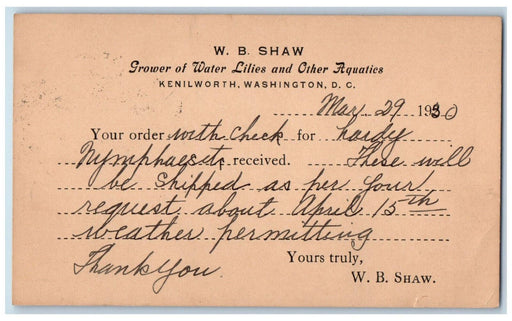 W. B. SHAW
Grower of Water Lilies and Other Aquatics
KENILWORTH, WASHINGTON, D. C.
Mar 29 1930
Your order with check for hardy
Nymphaes etc received. These will
be shipped as per your
request about April 15th
weather permitting
Thank you. Yours truly,
W. B. SHAW.